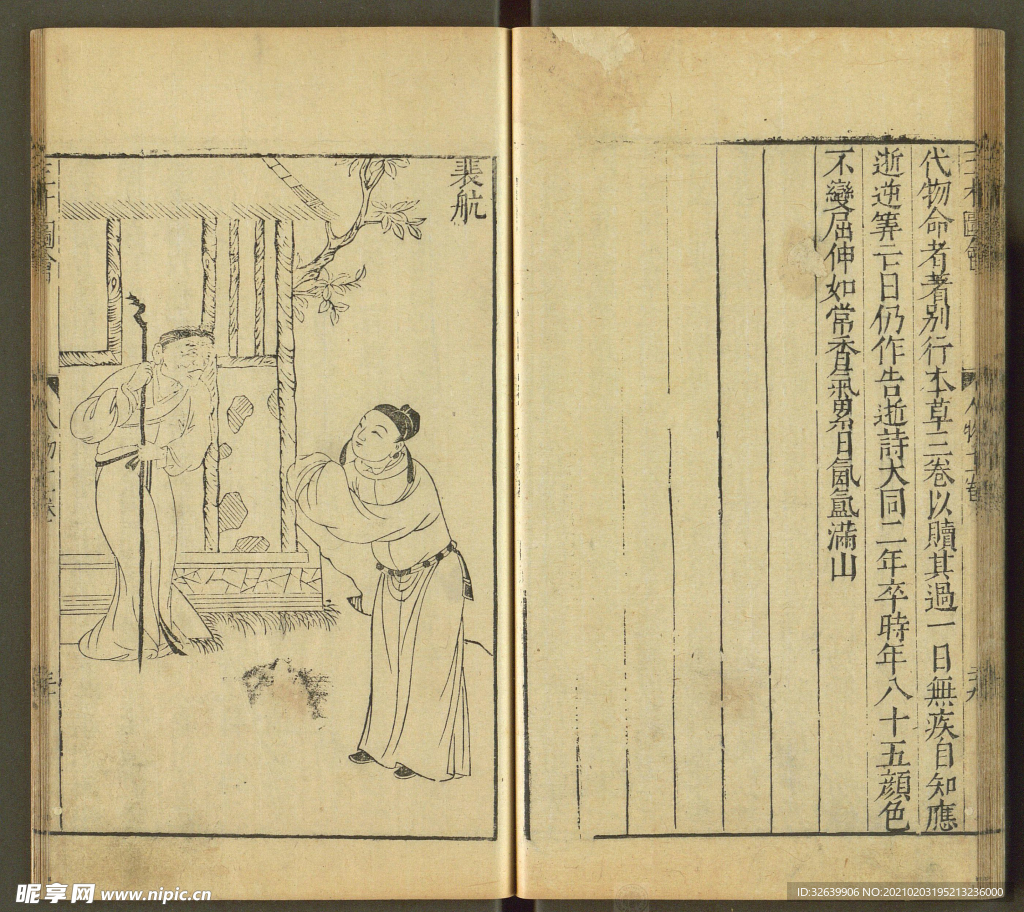 三才圖會
代物命者著別行本草三卷以贖其過一日無疾自知應
逝逆筭亡日仍作告逝詩大同二年卒時年八十五顏色
不變屈伸如常香氣累日氤氳滿山
裴航
昵享网 www.nipic.cn
ID:32639906 NO:20210203195213236000